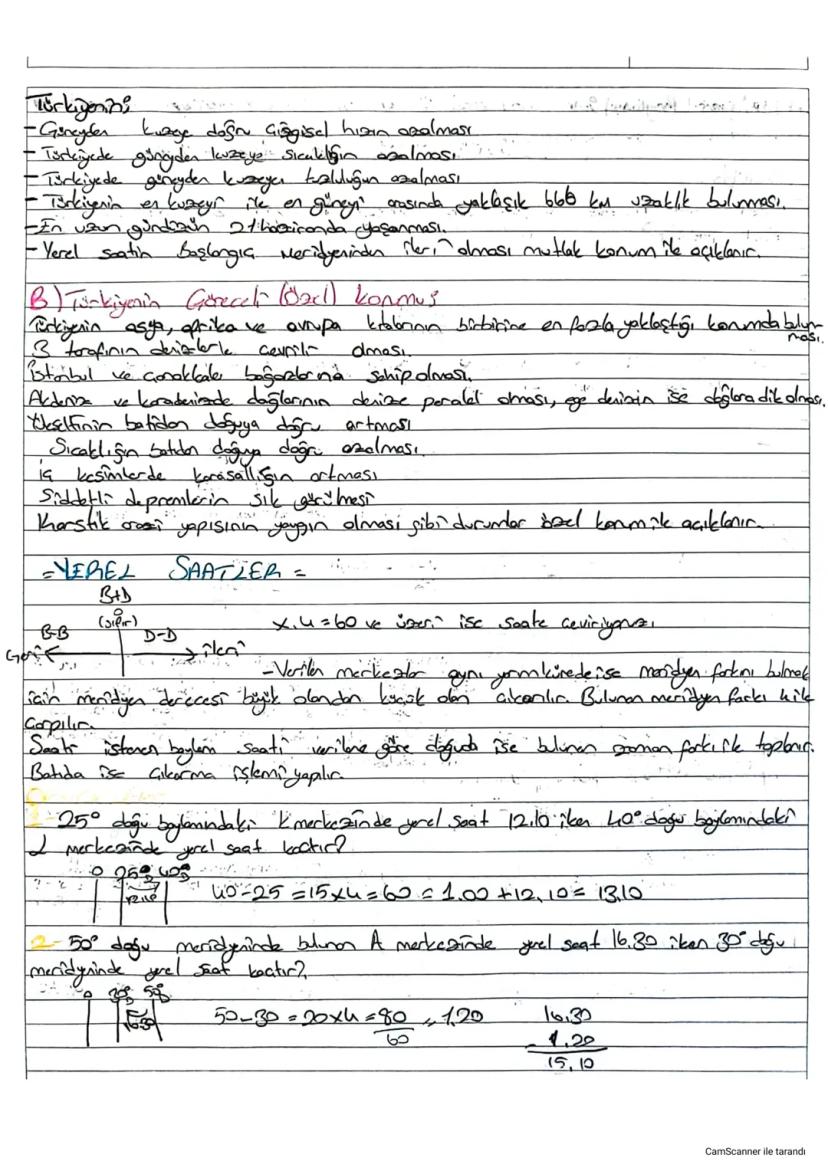 Türkiyenin;
- Güneyden kuzeye doğru çizgisel hızın azalması
- Türkiyede güneyden kuzeye sıcaklığın azalması
- Türkiyede güneyden kuzeye tuzluluğun azalması
- Türkiyenin en kuzeyi ile en güneyi arasında yaklaşık 666 km uzaklık bulunması.
- En uzun gündüzün 21 haziranda yaşanması.
- Yerel saatin Başlangıç Meridyeninden ileri olması mutlak konum ile açıklanır.
B) Türkiyenin Göreceli (Özel) konmuş
Türkiyenin asya, afrika ve avrupa kıtalarının birbirine en fazla yaklaştığı konumda bulunması.
3 tarafının denizlerle çevrili olması.
İstanbul ve Çanakkale boğazlarına sahip olması.
Akdeniz ve karadenizde dağlarının denize paralel olması, ege denizin ise dağlara dik olması.
Yükseltinin batıdan doğuya doğru artması
Sıcaklığın batıdan doğuya doğru azalması.
iç kesimlerde karasallığın artması
Şiddetli depremlerin sık görülmesi
Karstik arazi yapısının yaygın olması gibi durumlar özel konm ile açıklanır.
= YEREL SAATLER =
B+D
0
(sıfır)
B-B D-D
Geri ileri
x.4=60 ve üzeri ise saate çeviriyoruz.
- Verilen merkezler aynı yarımkürede ise meridyen farkını bulmak
için meridyen derecesi büyük olandan küçük olan çıkarılır. Bulunan meridyen farkı 4 ile
çarpılır.
Saati istenen boylam saati verilene göre doğuda ise bulunan zaman farkı ile toplanır.
Batıda ise çıkarma işlemi yapılır.
1- 25° doğu boylamındaki K merkezinde yerel saat 12.10 iken 40° doğu boylamındaki
L merkezinde yerel saat kaçtır?
0 25° 40°
12.10
40-25=15x4=60=1.00+12.10=13.10
2- 50° doğu meridyeninde bulunan A merkezinde yerel saat 16.30 iken 30° doğu
meridyninde yerel saat kaçtır?
0 30° 50°
16.30
50-30=20x4=80 = 1.20
60
16.30
- 1.20
15.10
CamScanner ile tarandı